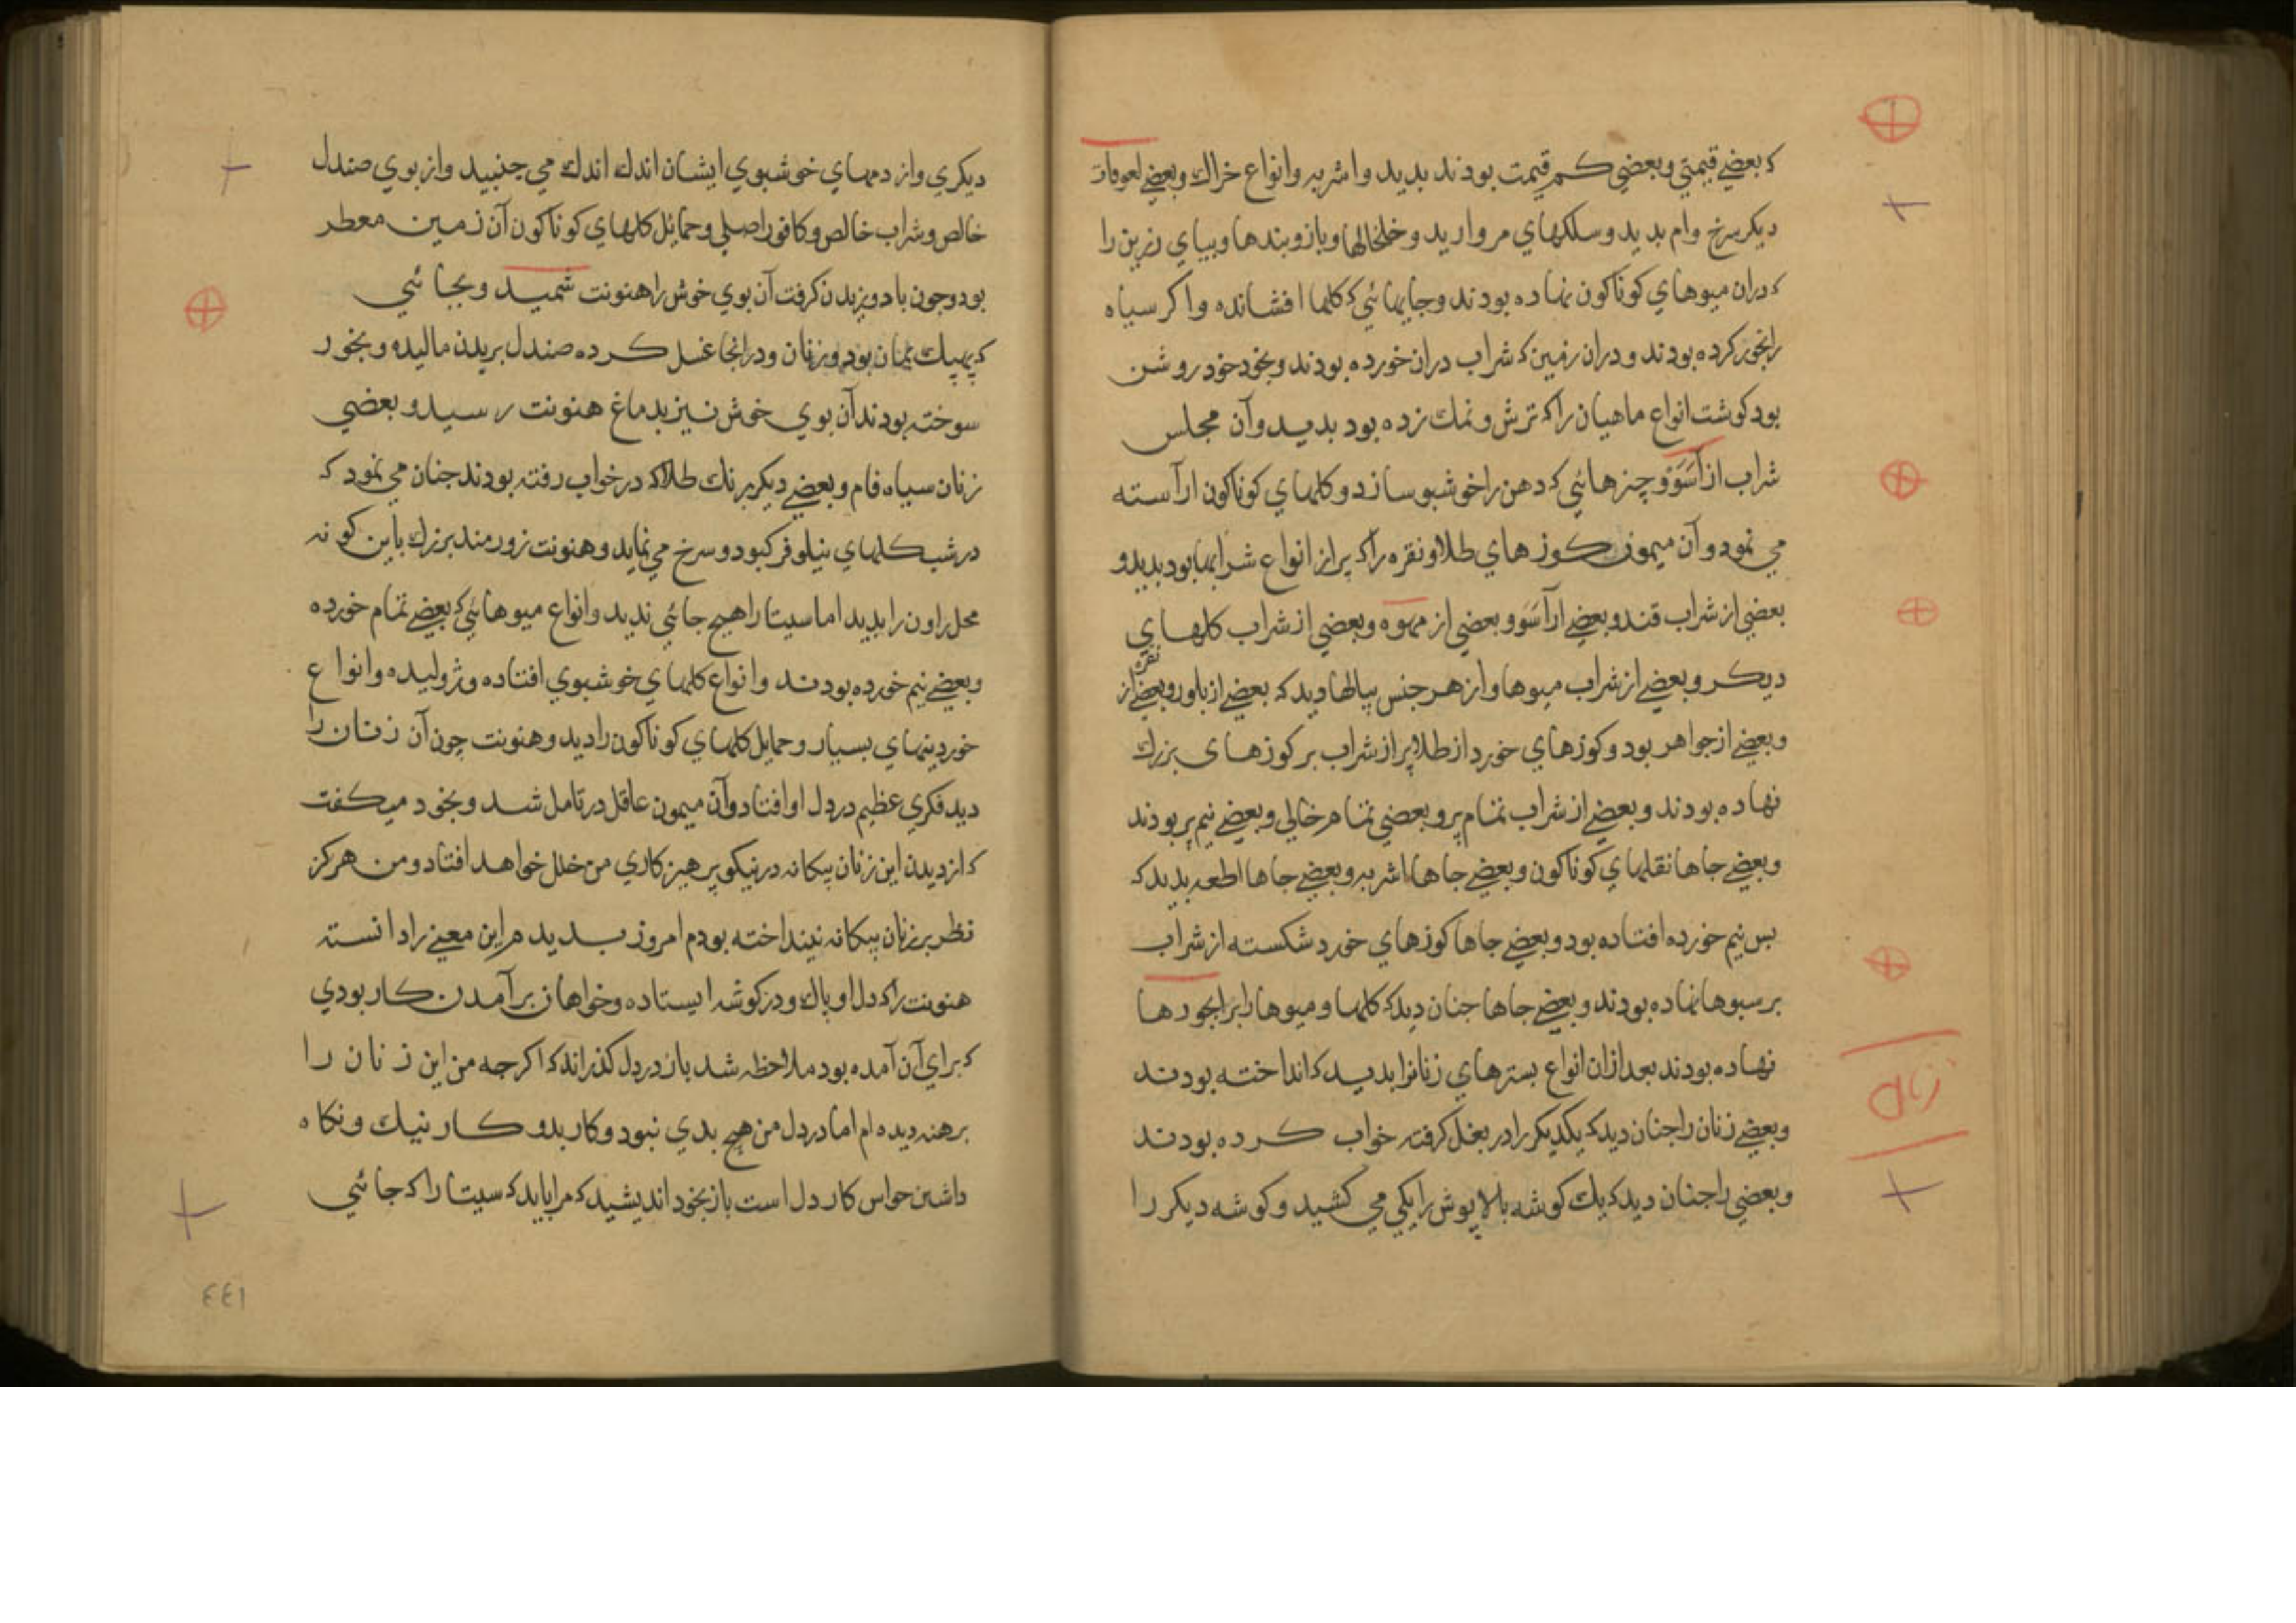 که بعضے قیمتی و بعضي کم قیمت بودند بدید واشربه وانواع خراك وبعضے لعوقات
دیکر سرخ وام بدید وسلکهاي مروارید وخلخالها وبازوبندها وبیپاي زرین را
که دران میوهاي کوناکون نهاده بودند وجایهائي که کلها افشانده واکر سیاه
را بخور کرده بودند ودران زمین که شراب دران خورده بودند وبخود خود روشن
بود کوشت انواع ماهیان را که ترش ونمك زده بود بدید وآن مجلس
شراب از آسَوَ وچیزهائي که دهن را خوشبو سازد وکلهاي کوناکون آراسته
مي نمود وآن میمون کوزهاي طلا ونقره را که پر از انواع شرابها بود بدید و
بعضي از شراب قند وبعضے از آسَوَ وبعضي از مهوه وبعضي از شراب کلهاي
دیکر وبعضے از شراب میوها واز هر جنس پیالها دید که بعضے از بلور وبعضے از نقره
وبعضے از جواهر بود وکوزهاي خورد از طلا پر از شراب بر کوزهاي بزرك
نهاده بودند وبعضے از شراب تمام پر وبعضي تمام خالي وبعضے نیم پر بودند
وبعضے جاها نقلهاي کوناکون وبعضے جاها اشربه وبعضے جاها اطعمه بدید که
بس نیم خورده افتاده بود وبعضے جاها کوزهاي خورد شکسته از شراب
بر سبوها نهاده بودند وبعضے جاها جنان دید که کلها ومیوها را بر ابخورها
نهاده بودند بعد ازان انواع بسترهاي زنانرا بدید که انداخته بودند
وبعضے زنان را جنان دید که یکدیکر را در بغل کرفته خواب کرده بودند
وبعضي را جنان دید که یك کوشه بالاپوش را یکي مي کشید وکوشه دیکر را
زنان
دیکري واز دمهاي خوشبوي ایشان اندك اندك مي جنبید واز بوي صندل
خالص وشراب خالص وکافور اصلي وحمائل کلهاي کوناکون آن زمین معطر
بود وجون باد وزیدن کرفت آن بوي خوش را هنونت شمید وبجائي
که پهپك نمان بود وزنان ودرانجا غسل کرده صندل بربدن مالیده وبخور
سوخته بودند آن بوي خوش نیز بدماغ هنونت رسید وبعضي
زنان سیاه فام وبعضے دیکر برنك طلا که در خواب رفته بودند جنان مي نمود که
در شب کلهاي نیلوفر کبود وسرخ مي نماید وهنونت زورمند بزرك باین کونه
محل راون را بدید اما سیتا را هیچ جائي ندید وانواع میوهائي که بعضے تمام خورده
وبعضے نیم خورده بودند وانواع کلهاي خوشبوي افتاده وژولیده وانواع
خوردنیهاي بسیار وحمایل کلهاي کوناکون را دید وهنونت چون آن زنان را
دید فکري عظیم در دل او افتاد وآن میمون عاقل در تامل شد وبخود میکفت
که از دیدن این زنان بیکانه در نیکو پرهیزکاري من خلل خواهد افتاد ومن هرکز
نظر بر زنان بیکانه نینداخته بودم امروز بدیدم این معنے را دانسته
هنونت را که دل او پاك ودر کوشه ایستاده وخواهان برآمدن کار بودي
که براي آن آمده بود ملاحظه شد باز در دل کذراند که اکرجه من این زنان را
برهنه دیده ام اما در دل من هیچ بدي نبود وکار بد وکار نیك ونکاه
داشتن حواس کار دل است باز بخود اندیشید که مرا باید که سیتا را که جائي
٤٤١